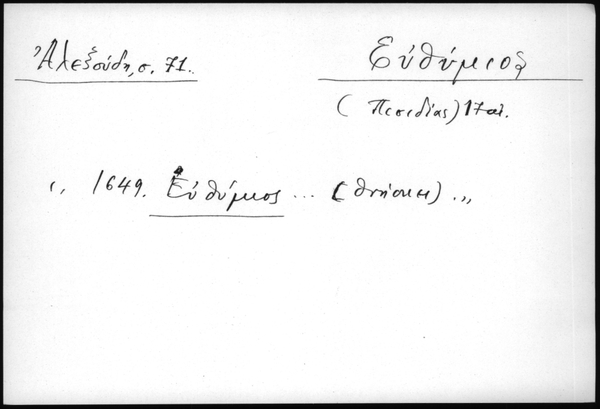 Ἀλεξούδη, σ. 71.
Εὐθύμιος
(Πισιδίας) 17 αἰ.
" 1649. Εὐθύμιος ... (θνήσκει) . "